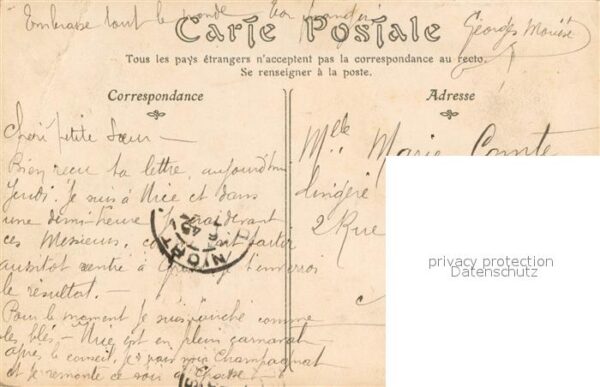 Embrasse tout le monde Ton
Georges Mouisse
Carte Postale
Tous les pays étrangers n'acceptent pas la correspondance au recto.
Se renseigner à la poste.
Correspondance
Chère petite Sœur —
Bien reçu ta lettre, aujourd'hui
Jeudi. Je suis à Nice et dans
une demi-heure devant
ces Messieurs,
aussitôt rentré à t'enverrai
le résultat. —
Pour le moment je suis comme
les blés — Nice est en plein carnaval
après le conseil, je vais voir Champagnat
et je remonte ce soir
Adresse
Mlle Marie Comte
lingère
2 Rue
NIORT
privacy protection
Datenschutz